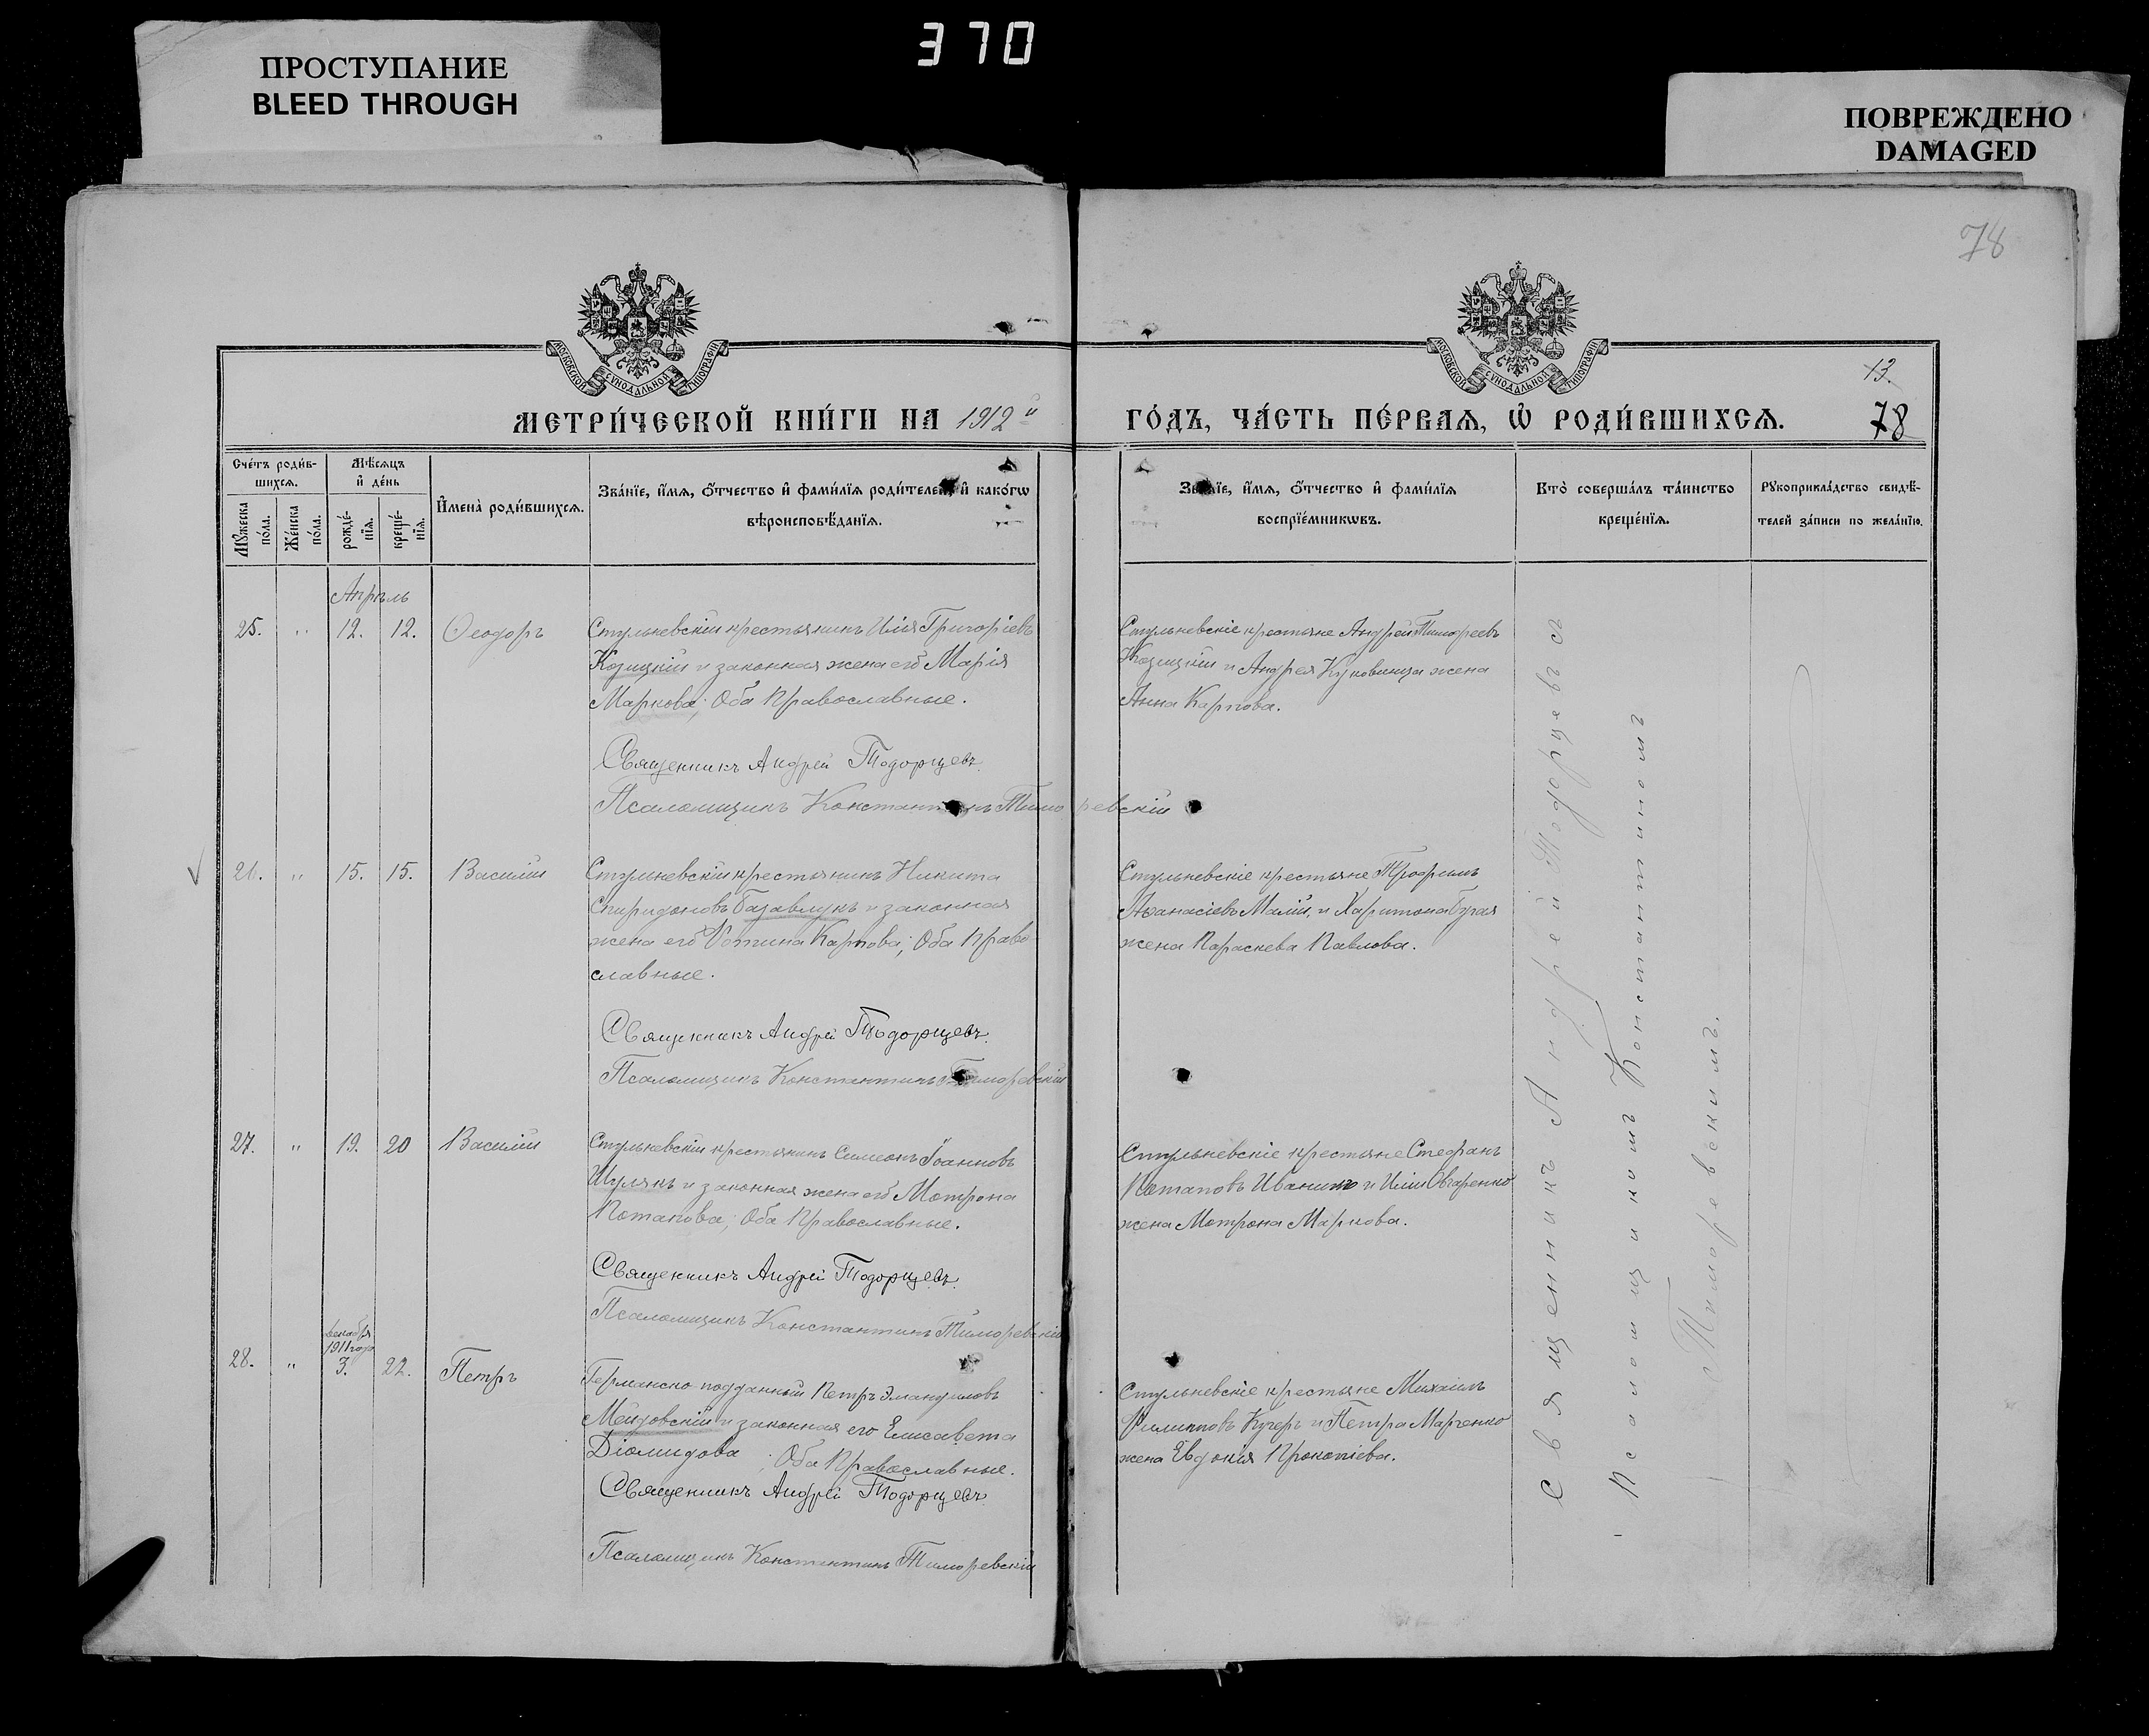 370
ПРОСТУПАНИЕ
BLEED THROUGH
ПОВРЕЖДЕНО
DAMAGED
78
МОСКОВСКОЙ СѴНОДАЛЬНОЙ ТИПОГРАФІИ
МОСКОВСКОЙ СѴНОДАЛЬНОЙ ТИПОГРАФІИ
13.
МЕТРИ́ЧЕСКОЙ КНИ́ГИ НА 1912 й
ГО́ДЪ, ЧА́СТЬ ПЕ́РВАѦ, Ѡ҆ РОДИ́ВШИХСѦ.
78
Сче́тъ роди́в-
шихсѧ.
Мѣ́сѧцъ
и҆ де́нь
Мꙋ́жеска
по́ла.
Же́нска
по́ла.
рожде́-
нїѧ.
креще́-
нїѧ.
И҆мена̀ роди́вшихсѧ.
Зва́нїе, и҆́мѧ, ѻ҆́тчество и҆ фами́лїѧ роди́телей, и҆ како́гѡ
вѣроисповѣ́данїѧ.
Зва́нїе, и҆́мѧ, ѻ҆́тчество и҆ фами́лїѧ
воспрїе́мникѡвъ.
Кто̀ соверша́лъ та́инство
креще́нїѧ.
Рꙋкоприкла́дство свидѣ́-
телей за́писи по жела́нїю.
Апрѣль
25. " 12. 12. Ѳеодоръ
Стульневскій крестьянинъ Илія Григоріевъ
Козицкій и законная жена его Марія
Маркова; Оба Православные.
Священникъ Андрей Тодорцевъ.
Псаломщикъ Константинъ Тиморевскій
Стульневскіе крестьяне Андрей Тимофеевъ
Козицкій и Андрея Куковицы жена
Анна Карпова.
26. " 15. 15. Василій
Стульневскій крестьянинъ Никита
Спиридоновъ Базавлукъ и законная
жена его Фотина Карпова; Оба Право
славные.
Священникъ Андрей Тодорцевъ.
Псаломщикъ Константинъ Тиморевскій
Стульневскіе крестьяне Трофимъ
Аѳанасіевъ Малій, и Харитона Бурая
жена Параскева Павлова.
27. " 19. 20 Василій
Стульневскій крестьянинъ Симеонъ Іоанновъ
Шулякъ и законная жена его Мотрона
Потапова; Оба Православные.
Священникъ Андрей Тодорцевъ.
Псаломщикъ Константинъ Тиморевскій
Стульневскіе крестьяне Стефанъ
Потаповъ и Иліи Овчаренко
жена Мотрона Маркова.
декабря
1911 года
28. " 3. 22. Петръ
Германско подданный Петръ
и законная его Елисавета
Діомидова; Оба Православные.
Священникъ Андрей Тодорцевъ.
Псаломщикъ Константинъ Тиморевскій
Стульневскіе крестьяне Михаилъ
Филипповъ Кучеръ и Петра Марченко
жена Евдокія Прокопіева.
Священникъ Андрей Тодорцевъ
Псаломщикомъ Константиномъ
Тиморевскимъ.